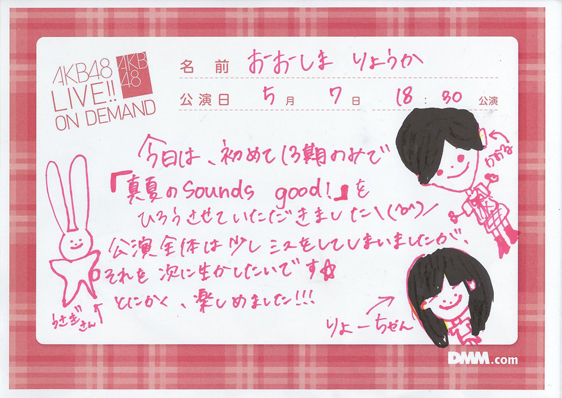 AKB48
LIVE!!
ON DEMAND
AKB
48
名前 おおしま りょうか
公演日 5月 7日 18:30 公演
今日は、初めて13期のみで
『真夏のSounds good!』を
ひろうさせていただきました\(^o^)/
公演全体は少しミスをしてしまいましたが、
それを次に生かしたいです☆
とにかく、楽しめました!!!
うさぎさん
りょーちゃん
DMM.com